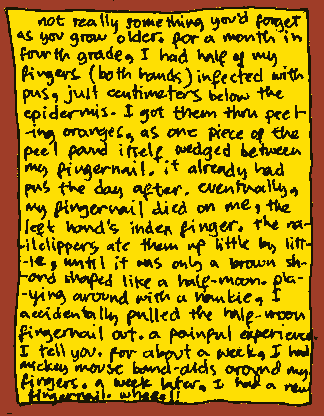 not really something you'd forget
as you grow older. for a month in
fourth grade, I had half of my
fingers (both hands) infected with
pus, just centimeters below the
epidermis. I got them thru peel-
-ing oranges, as one piece of the
peel found itself wedged between
my fingernail. it already had
pus the day after. eventually,
my fingernail died on me, the
left hand's index finger. the na-
-ilclippers ate them up little by litt-
-le, until it was only a brown sh-
-ard shaped like a half-moon. pla-
-ying around with a hankie, I
accidentally pulled the half-moon
fingernail out. a painful experience.
I tell you. for about a week, I had
mickey mouse band-aids around my
fingers. a week later, I had a new
fingernail. whee!!